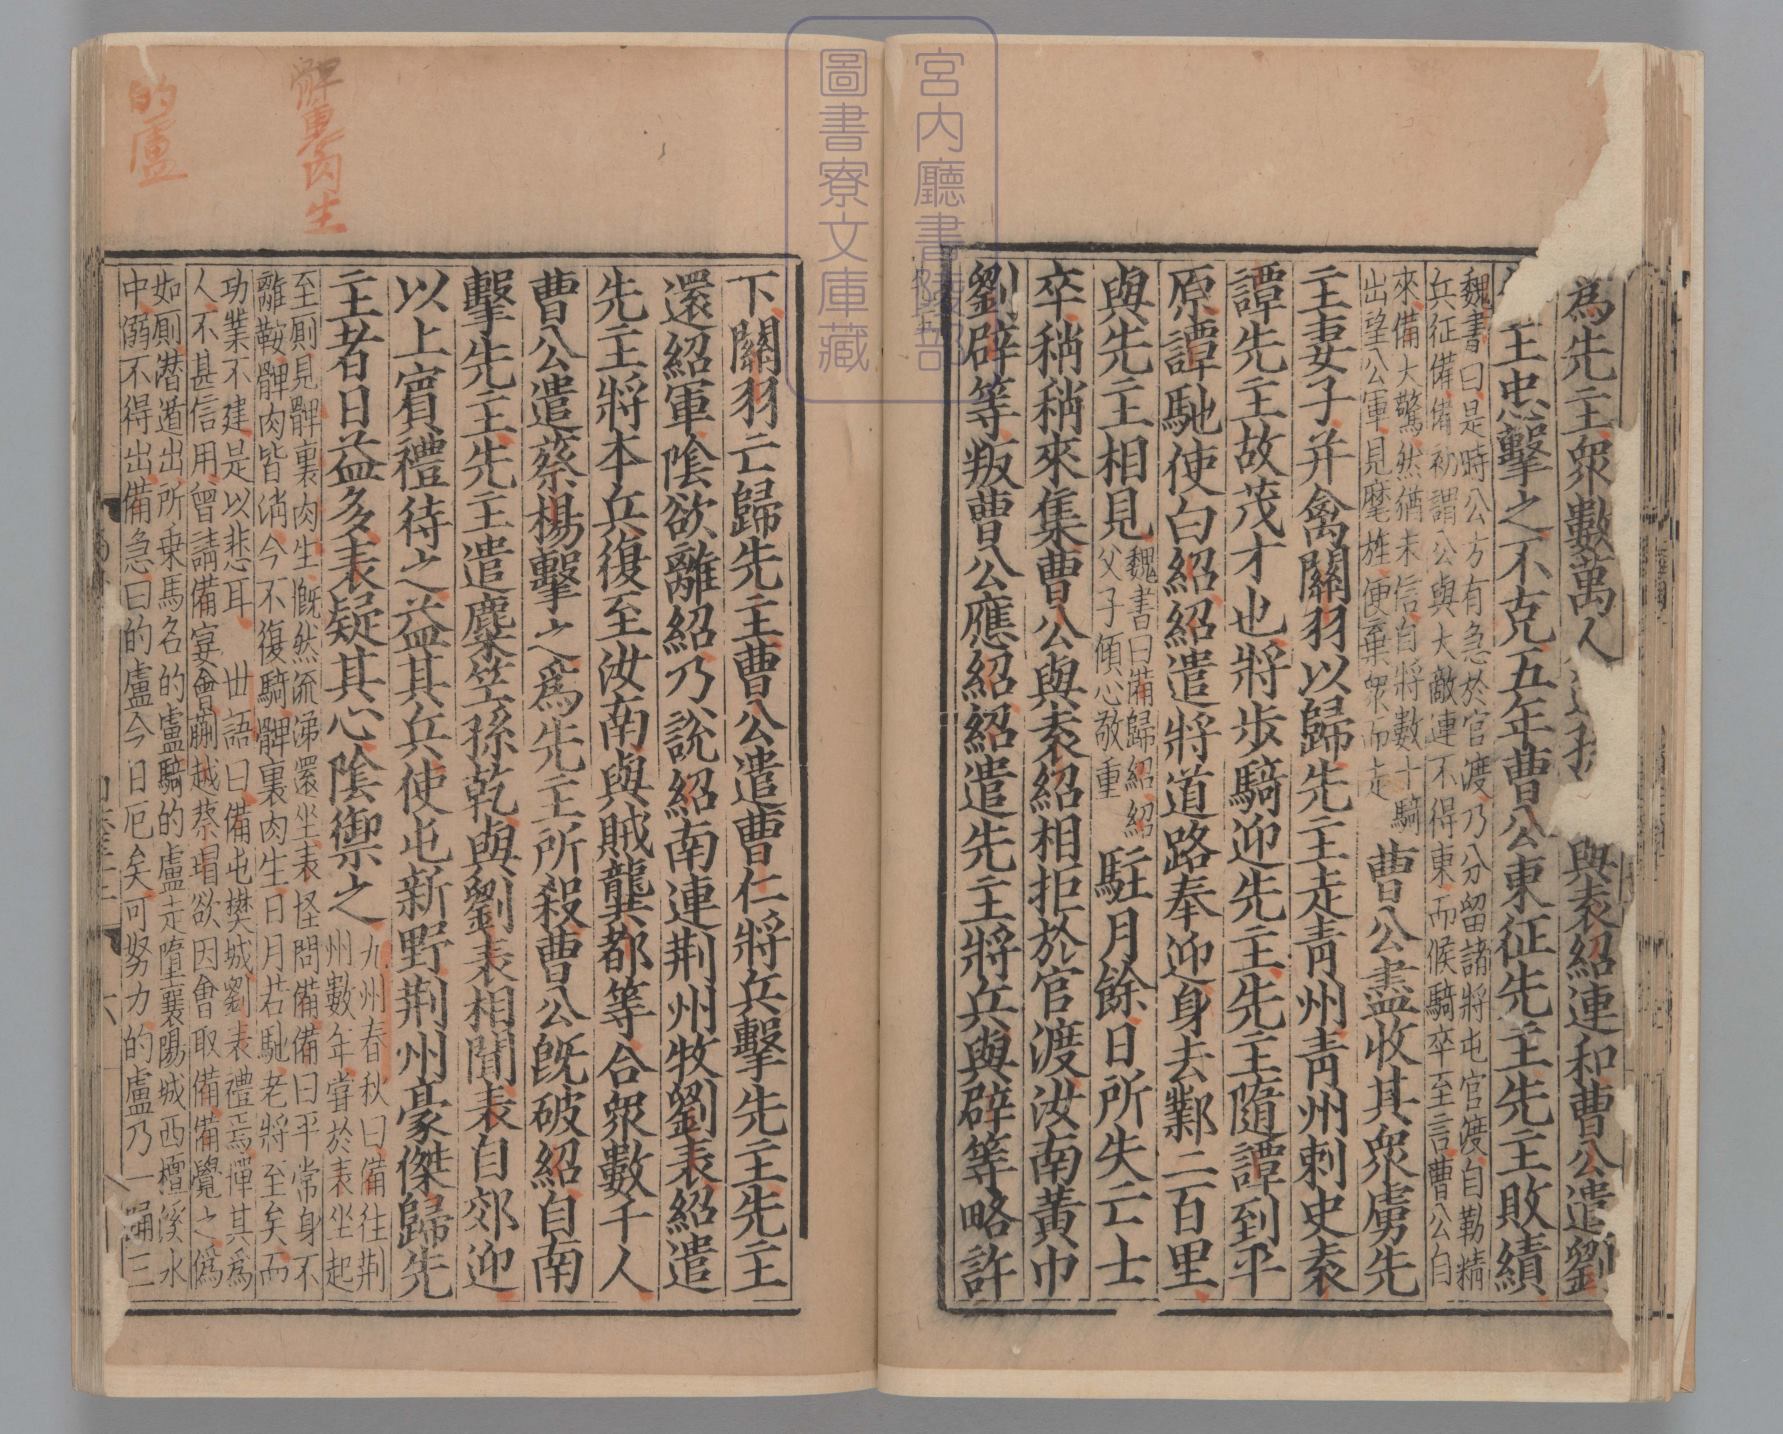 為先主眾數萬人與袁紹連和曹公遣劉
主忠擊之不克五年曹公東征先主先主敗績
魏書曰是時公方有急於官渡乃分留諸將屯官渡自勒精
兵征備備初謂公與大敵連不得東而候騎卒至言曹公自
來備大驚然猶未信自將數十騎
出望公軍見麾旌便棄眾而走
曹公盡收其眾虜先
主妻子并禽關羽以歸先主走青州青州刺史袁
譚先主故茂才也將步騎迎先主先主隨譚到平
原譚馳使白紹紹遣將道路奉迎身去鄴二百里
與先主相見
魏書曰備歸紹紹
父子傾心敬重
駐月餘日所失亡士
卒稍稍來集曹公與袁紹相拒於官渡汝南黃巾
劉辟等叛曹公應紹紹遣先主將兵與辟等略許
宮内廳書陵部
圖書寮文庫藏
下關羽亡歸先主曹公遣曹仁將兵擊先主先主
還紹軍陰欲離紹乃說紹南連荆州牧劉表紹遣
先主將本兵復至汝南與賊龔都等合眾數千人
曹公遣蔡楊擊之為先主所殺曹公既破紹自南
擊先主先主遣麋竺孫乾與劉表相聞表自郊迎
以上賓禮待之益其兵使屯新野荆州豪傑歸先
主者日益多表疑其心陰禦之
九州春秋曰備往荆
州數年嘗於表坐起
至厠見髀裏肉生慨然流涕還坐表怪問備備曰平常身不
離鞍髀肉皆消今不復騎髀裏肉生日月若馳老將至矣而
功業不建是以悲耳 世語曰備屯樊城劉表禮焉憚其為
人不甚信用曾請備宴會蒯越蔡瑁欲因會取備備覺之偽
如厠潛遁出所乗馬名的盧騎的盧走墮襄陽城西檀溪水
中溺不得出備急曰的盧今日厄矣可努力的盧乃一踊三
髀裏肉生
的盧
六